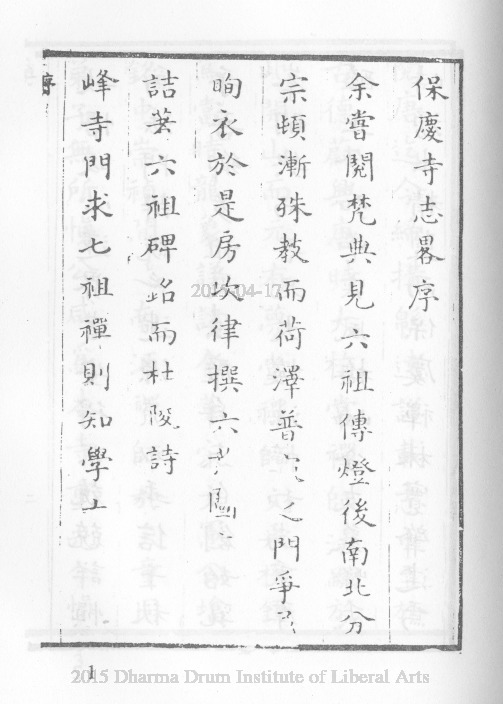 保慶寺志畧序
余嘗閱梵典見六祖傳燈後南北分
宗頓漸殊教而荷澤普之門爭
衣於是房次律撰六
詰著六祖碑銘而杜陵詩
峰寺門求七祖禪則知學
序
2015-04-17
1
2015 Dharma Drum Institute of Liberal Arts